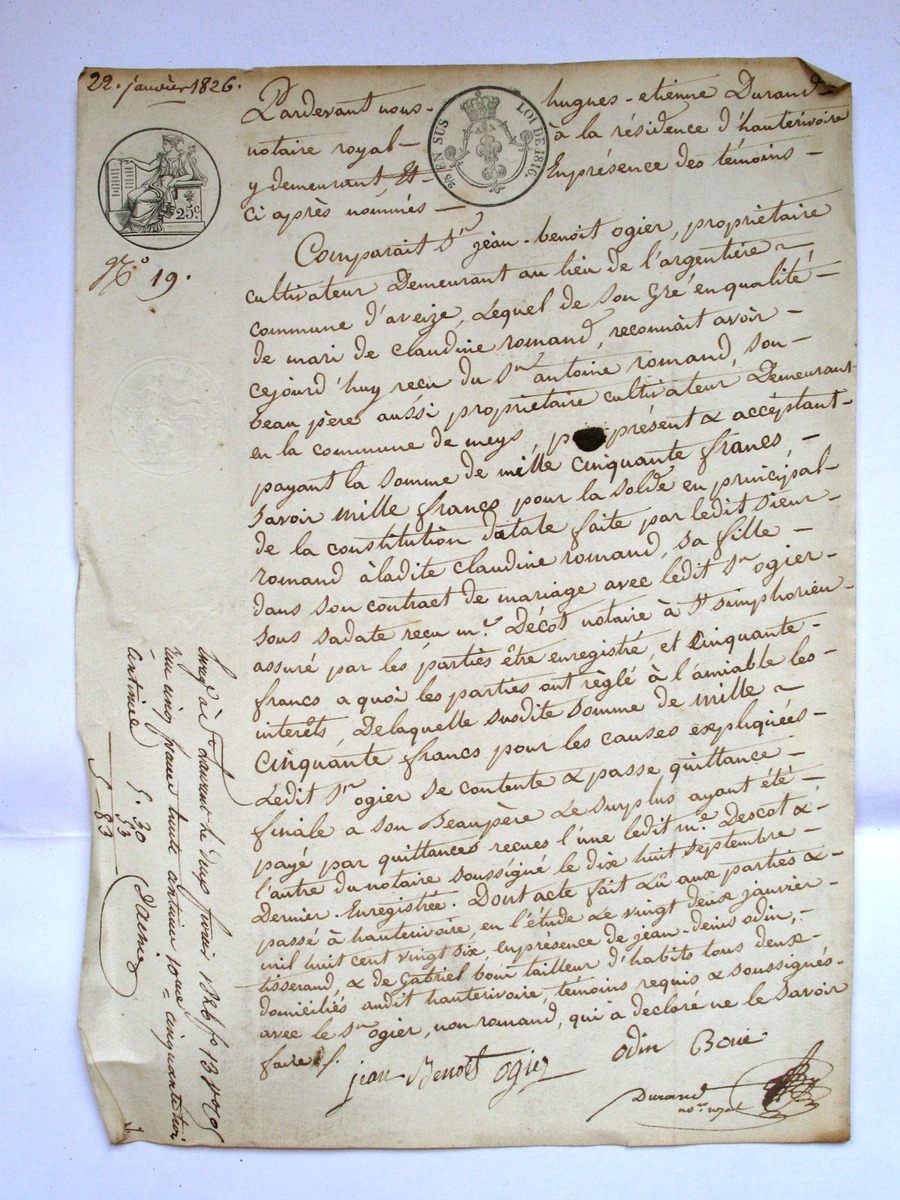 22. janvier 1826.
Pardevant nous - hugues - etienne Durand -
notaire royal - à la résidence d'hauterivoire
y demeurant, Et - Enprésence des témoins -
ci après nommés -
2/5 EN SUS
LOI DE 1816.
25c
N.° 19.
Comparait Sr jean-benoit ogier, propriétaire
cultivateur Demeurant au lieu de l'argentière
commune d'aveize, Lequel de son Gré enqualité -
de mari de claudine romand, reconnait avoir -
cejourd'huy reçu du Sr antoine romand, son -
beau père aussi propriétaire cultivateur Demeurant
en la commune de meys, présent & accéptant -
payant la somme de mille cinquante francs, -
Savoir mille francs pour la solde en principal -
de la constitution dotale faite par ledit Sieur -
romand à ladite claudine romand, sa fille -
dans son contract de mariage avec ledit Sr ogier -
sous sadate reçu me. Décot notaire à St simphorien -
assuré par les parties être enregistré, et Cinquante -
francs a quoi les parties ont reglé à l'amiable les -
interêts, Delaquelle susdite somme de mille
Cinquante francs pour les causes expliquées -
Ledit Sr ogier se contente & passe quittance -
finale a son Beaupère Le surplus ayant été -
payé par quittances recues l'une ledit me. Descot & -
l'autre du notaire soussigné le dix huit septembre -
Dernier. Enregistrée. Dont acte fait Lû aux parties &
passé à hauterivoire, en l'étude Le vingt deux janvier -
mil huit cent vingt six, enprésence de jean-denis odin, -
tisserand, & de Gabriel bouie tailleur d'habits tous deux -
domiciliés audit hauterivoire, témoins requis & soussignés -
avec le Sr ogier, non romand, qui a declaré ne le Savoir
faire ./.
jean Benoit ogier
odin Bouie
Durand
nore royal
Enregé à St Laurent le deux fevrier 1826 fo 13
cinq francs trente centimes 10me cinquante trois
centimes
5. 30
53
5 83